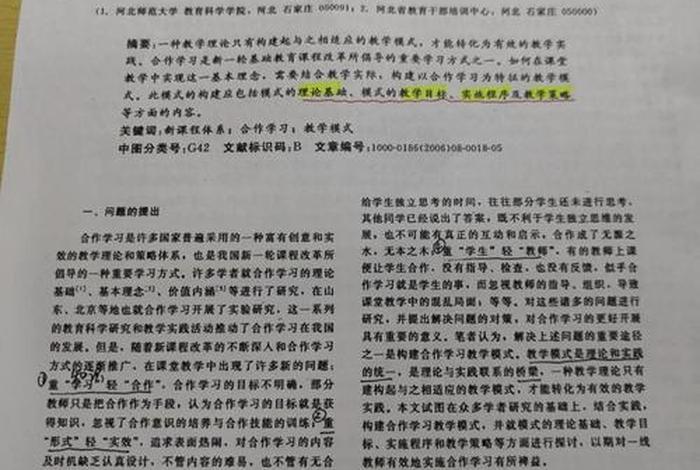 (1. 河北师范大学 教育科学学院, 河北 石家庄 050091; 2. 河北省教育干部培训中心, 河北 石家庄 050000)
摘要:一种教学理论只有构建起与之相适应的教学模式, 才能转化为有效的教学实
践。合作学习是新一轮基础教育课程改革所倡导的重要学习方式之一。如何在课堂
教学中实现这一基本理念, 需要结合教学实际, 构建以合作学习为特征的教学模
式。此模式的构建应包括模式的理论基础、模式的教学目标、实施程序及教学策略
等方面的内容。
关键词:新课程体系; 合作学习; 教学模式
中图分类号:G42 文献标识码:B 文章编号:1000-0186(2006)08-0018-05
一、问题的提出
合作学习是许多国家普遍采用的一种富有创意和实
效的教学理论和策略体系, 也是我国新一轮课程改革所
倡导的一种重要学习方式。许多学者就合作学习的理论
基础[1]、基本理念[2]、价值内涵[3]等进行了研究, 在山
东、北京等地也就合作学习开展了实验研究, 这一系列
的教育科学研究和教学实践活动推动了合作学习在我国
的发展。但是, 随着新课程改革的不断深入和合作学习
方式的逐渐推广, 在课堂教学中出现了许多新的问题:
① 重“学习”轻“合作”。合作学习的目标不明确, 部分
教师只是把合作作为手段, 认为合作学习的目标就是获
得知识, 忽视了合作意识的培养与合作技能的训练; ②重
“形式”轻“实效”, 追求表面热闹, 对合作学习的内容
及时机缺乏认真设计, 不管内容的难易, 也不管有无合
给学生独立思考的时间, 往往部分学生还未进行思考,
其他同学已经说出了答案, 既不利于学生独立思维的发
展, 也不可能有真正的互动和启示, 合作成了无源之
水, 无本之木; 重“学生”轻“教师”, 有的教师上课
便让学生合作, 没有指导、检查, 也没有反馈, 似乎合
作学习就是学生的事, 而忽视教师的指导、组织, 导致
课堂教学中的混乱局面; 等等。对这些诸多的问题进行
研究, 并提出解决问题的对策, 对合作学习的更好开展
具有重要的意义。笔者认为, 解决上述问题的重要途径
之一是构建合作学习教学模式。教学模式是理论和实践
的统一, 是理论与实践联系的桥梁, 一种教学理论只有
建构起与之相适应的教学模式, 才能转化为有效的教学
实践。本文试图在众多学者研究的基础上, 结合实践,
构建合作学习教学模式, 并就模式的理论基础、教学目
标、实施程序和教学策略等方面进行探讨, 以期对一线
教师有效地实施合作学习有所裨益。